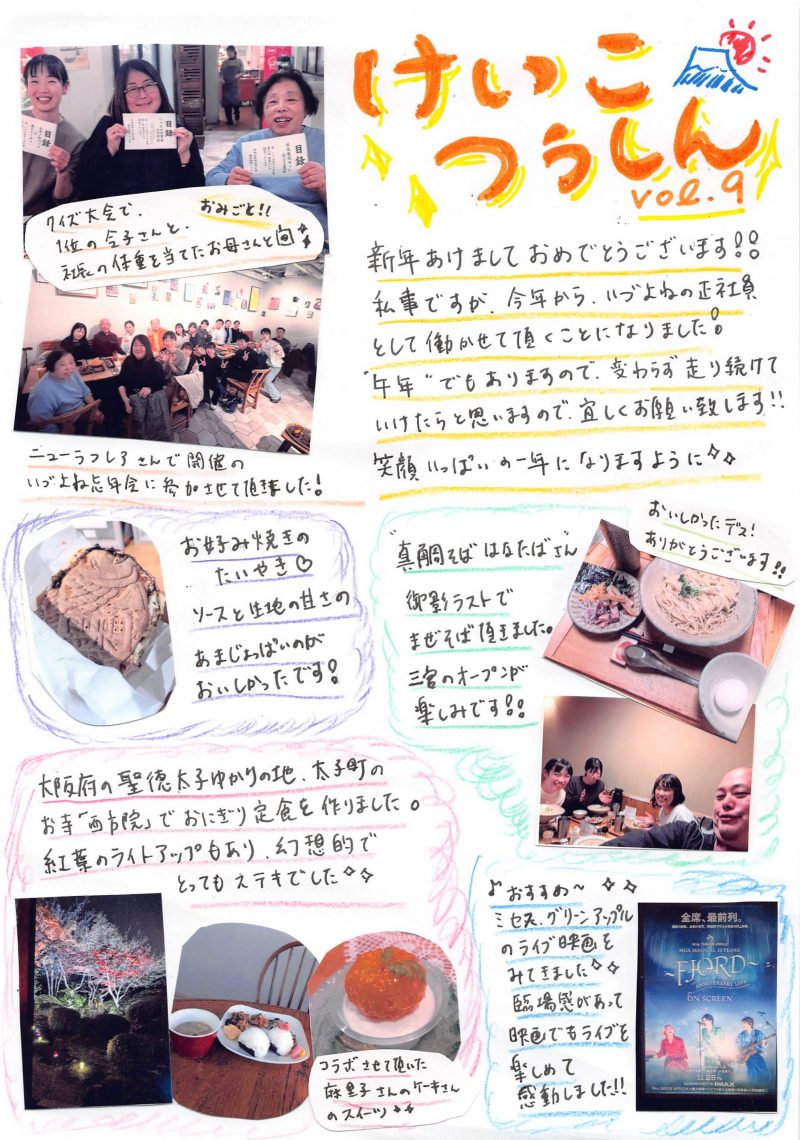 けいこ
つうしん
vol.9
目録
目録
目録
クイズ大会で、
1位の令子さんと、
おみごと!!
社長の体重を当てたお母さんと
新年あけましておめでとうございます!!
私事ですが、今年から、いづよねの正社員
として働かせて頂くことになりました!
"午年"でもありますので、変わらず走り続けて
いけたらと思いますので、宜しくお願い致します!!
笑顔いっぱいの一年になりますように
ニューラフレアさんで開催の
いづよね忘年会に参加させて頂きました!
お好み焼きの
たいやき♡
ソースと生地の甘さの
あまじょっぱいのが
おいしかったです!
"真鯛そば はなたば"さん
御影ラストで
まぜそば頂きました。
三宮のオープンが
楽しみです!!
おいしかったデス!
ありがとうございます!!
大阪府の聖徳太子ゆかりの地、太子町の
お寺「西方院」でおにぎり定食を作りました。
紅葉のライトアップもあり、幻想的で
とってもステキでした
コラボさせて頂いた
麻里子さんのケーキさん
のスイーツ
♪おすすめ〜
ミセス、グリーンアップル
のライブ映画を
みてきました
臨場感があって
映画でもライブを
楽しめて
感動しました!!
全席、最前列。
MRS. GREEN APPLE
MGA MAGICAL 10 YEARS
〜FJORD〜
ANNIVERSARY LIVE
ON SCREEN
11.28
IMAX